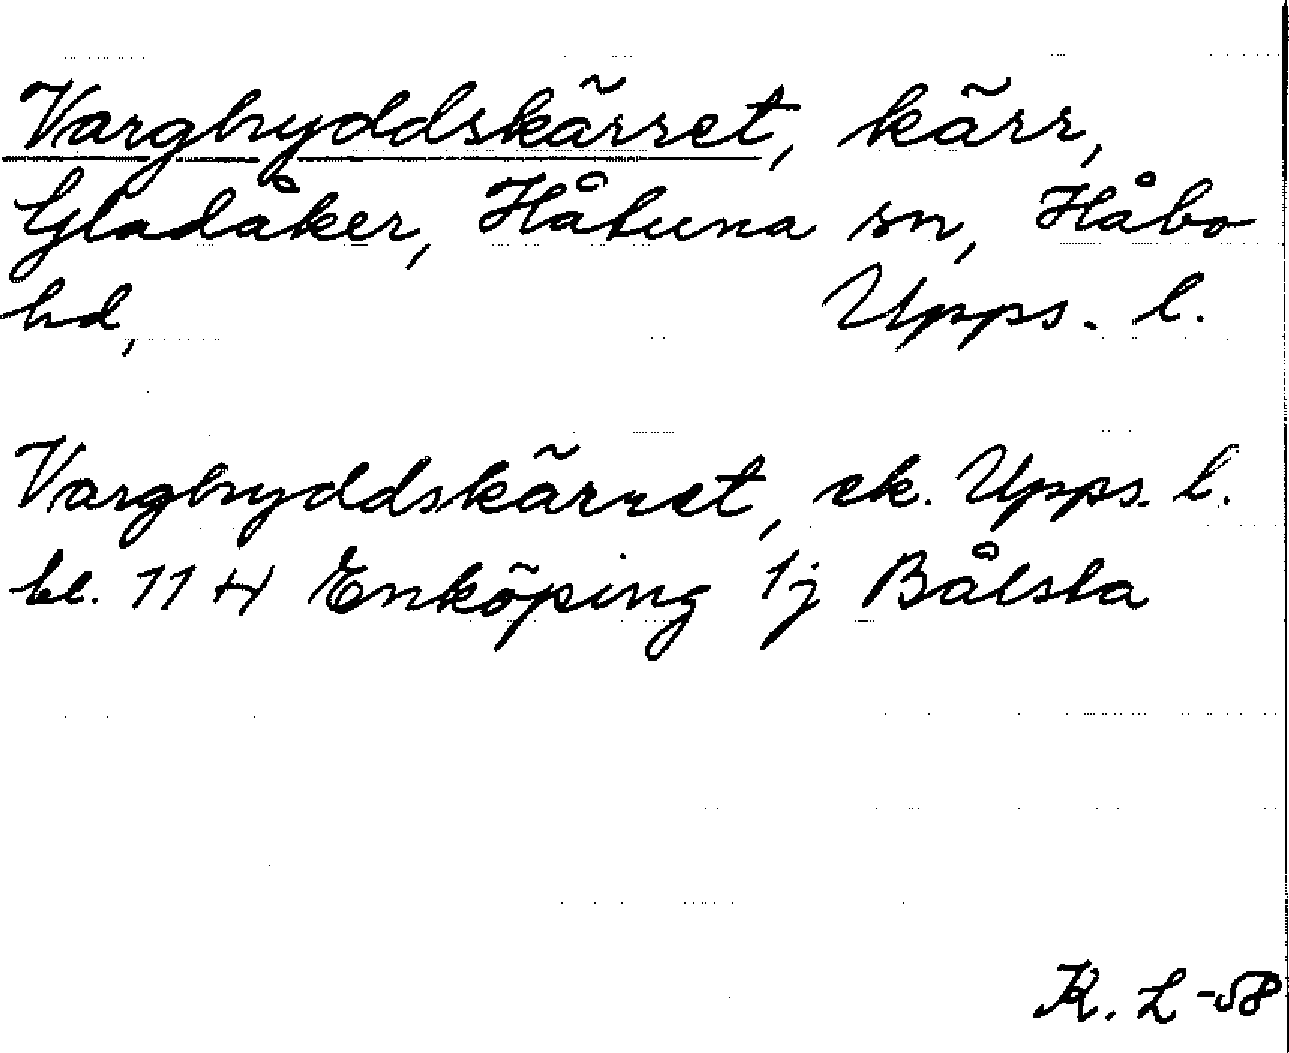 Vargbryddskärret, kärr,
Gladåker, Håtuna sn, Håbo
hd, Upps. l.
Vargbryddskärret, ek. Upps. l.
bl. 11 H Enköping 1j Bålsta
K. L -58